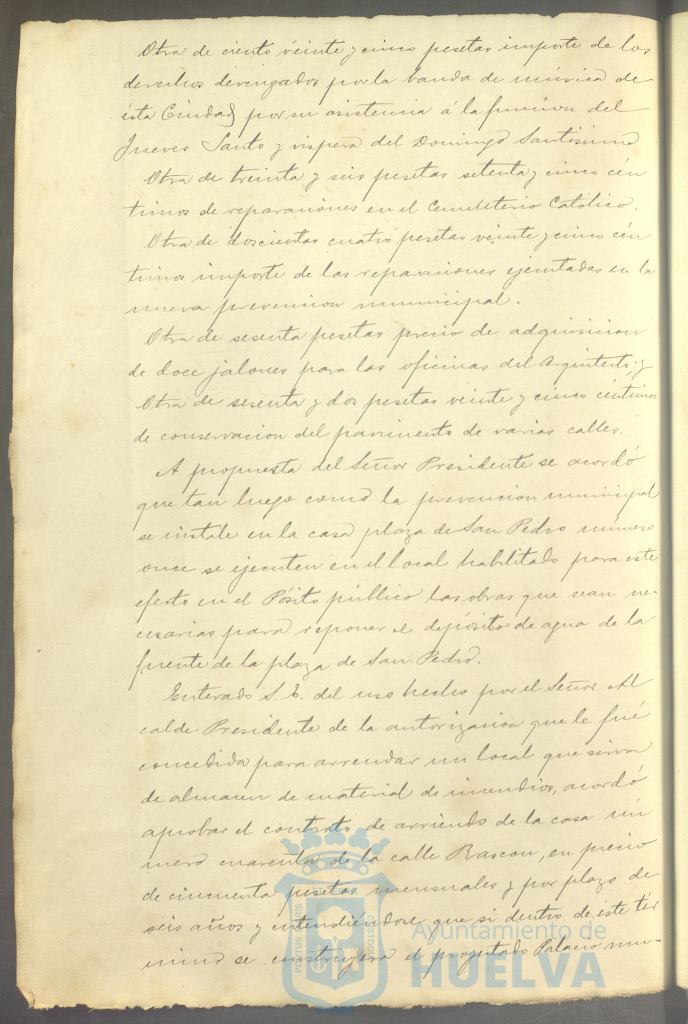 Otra de ciento veinte y cinco pesetas importe de los
derechos devengados por la banda de música de
ésta Ciudad por su asistencia á la funcion del
Jueves Santo y vispera del Domingo Santisimo
Otra de treinta y seis pesetas setenta y cinco cén
timos de reparaciones en el Cementerio Católico.
Otra de doscientas cuatro pesetas veinte y cinco cén
timos importe de las reparaciones ejecutadas en la
nueva prevencion municipal.
Otra de sesenta pesetas precio de adquisicion
de doce jalones para las oficinas del Arquitecto; y
Otra de sesenta y dos pesetas veinte y cinco céntimos
de conservacion del pavimento de varias calles.
A propuesta del Señor Presidente se acordó
que tan luego como la prevencion municipal
se instale en la casa plaza de San Pedro número
once se ejecuten en el local habilitado para este
efecto en el Pósito público las obras que sean ne-
cesarias para reponer el depósito de agua de la
fuente de la plaza de San Pedro.
Enterado S. E. del uso hecho por el Señor Al
calde Presidente de la autorizacion que le fué
concedida para arrendar un local que sirva
de almacen de material de incendios, acordó
aprobar el contrato de arriendo de la casa nú
mero cuarenta de la calle Rascon, en precio
de cincuenta pesetas mensuales y por plazo de
seis años y entendiéndose que si dentro de este tér
mino se construyera el proyectado Palacio mu-
Ayuntamiento de
HUELVA